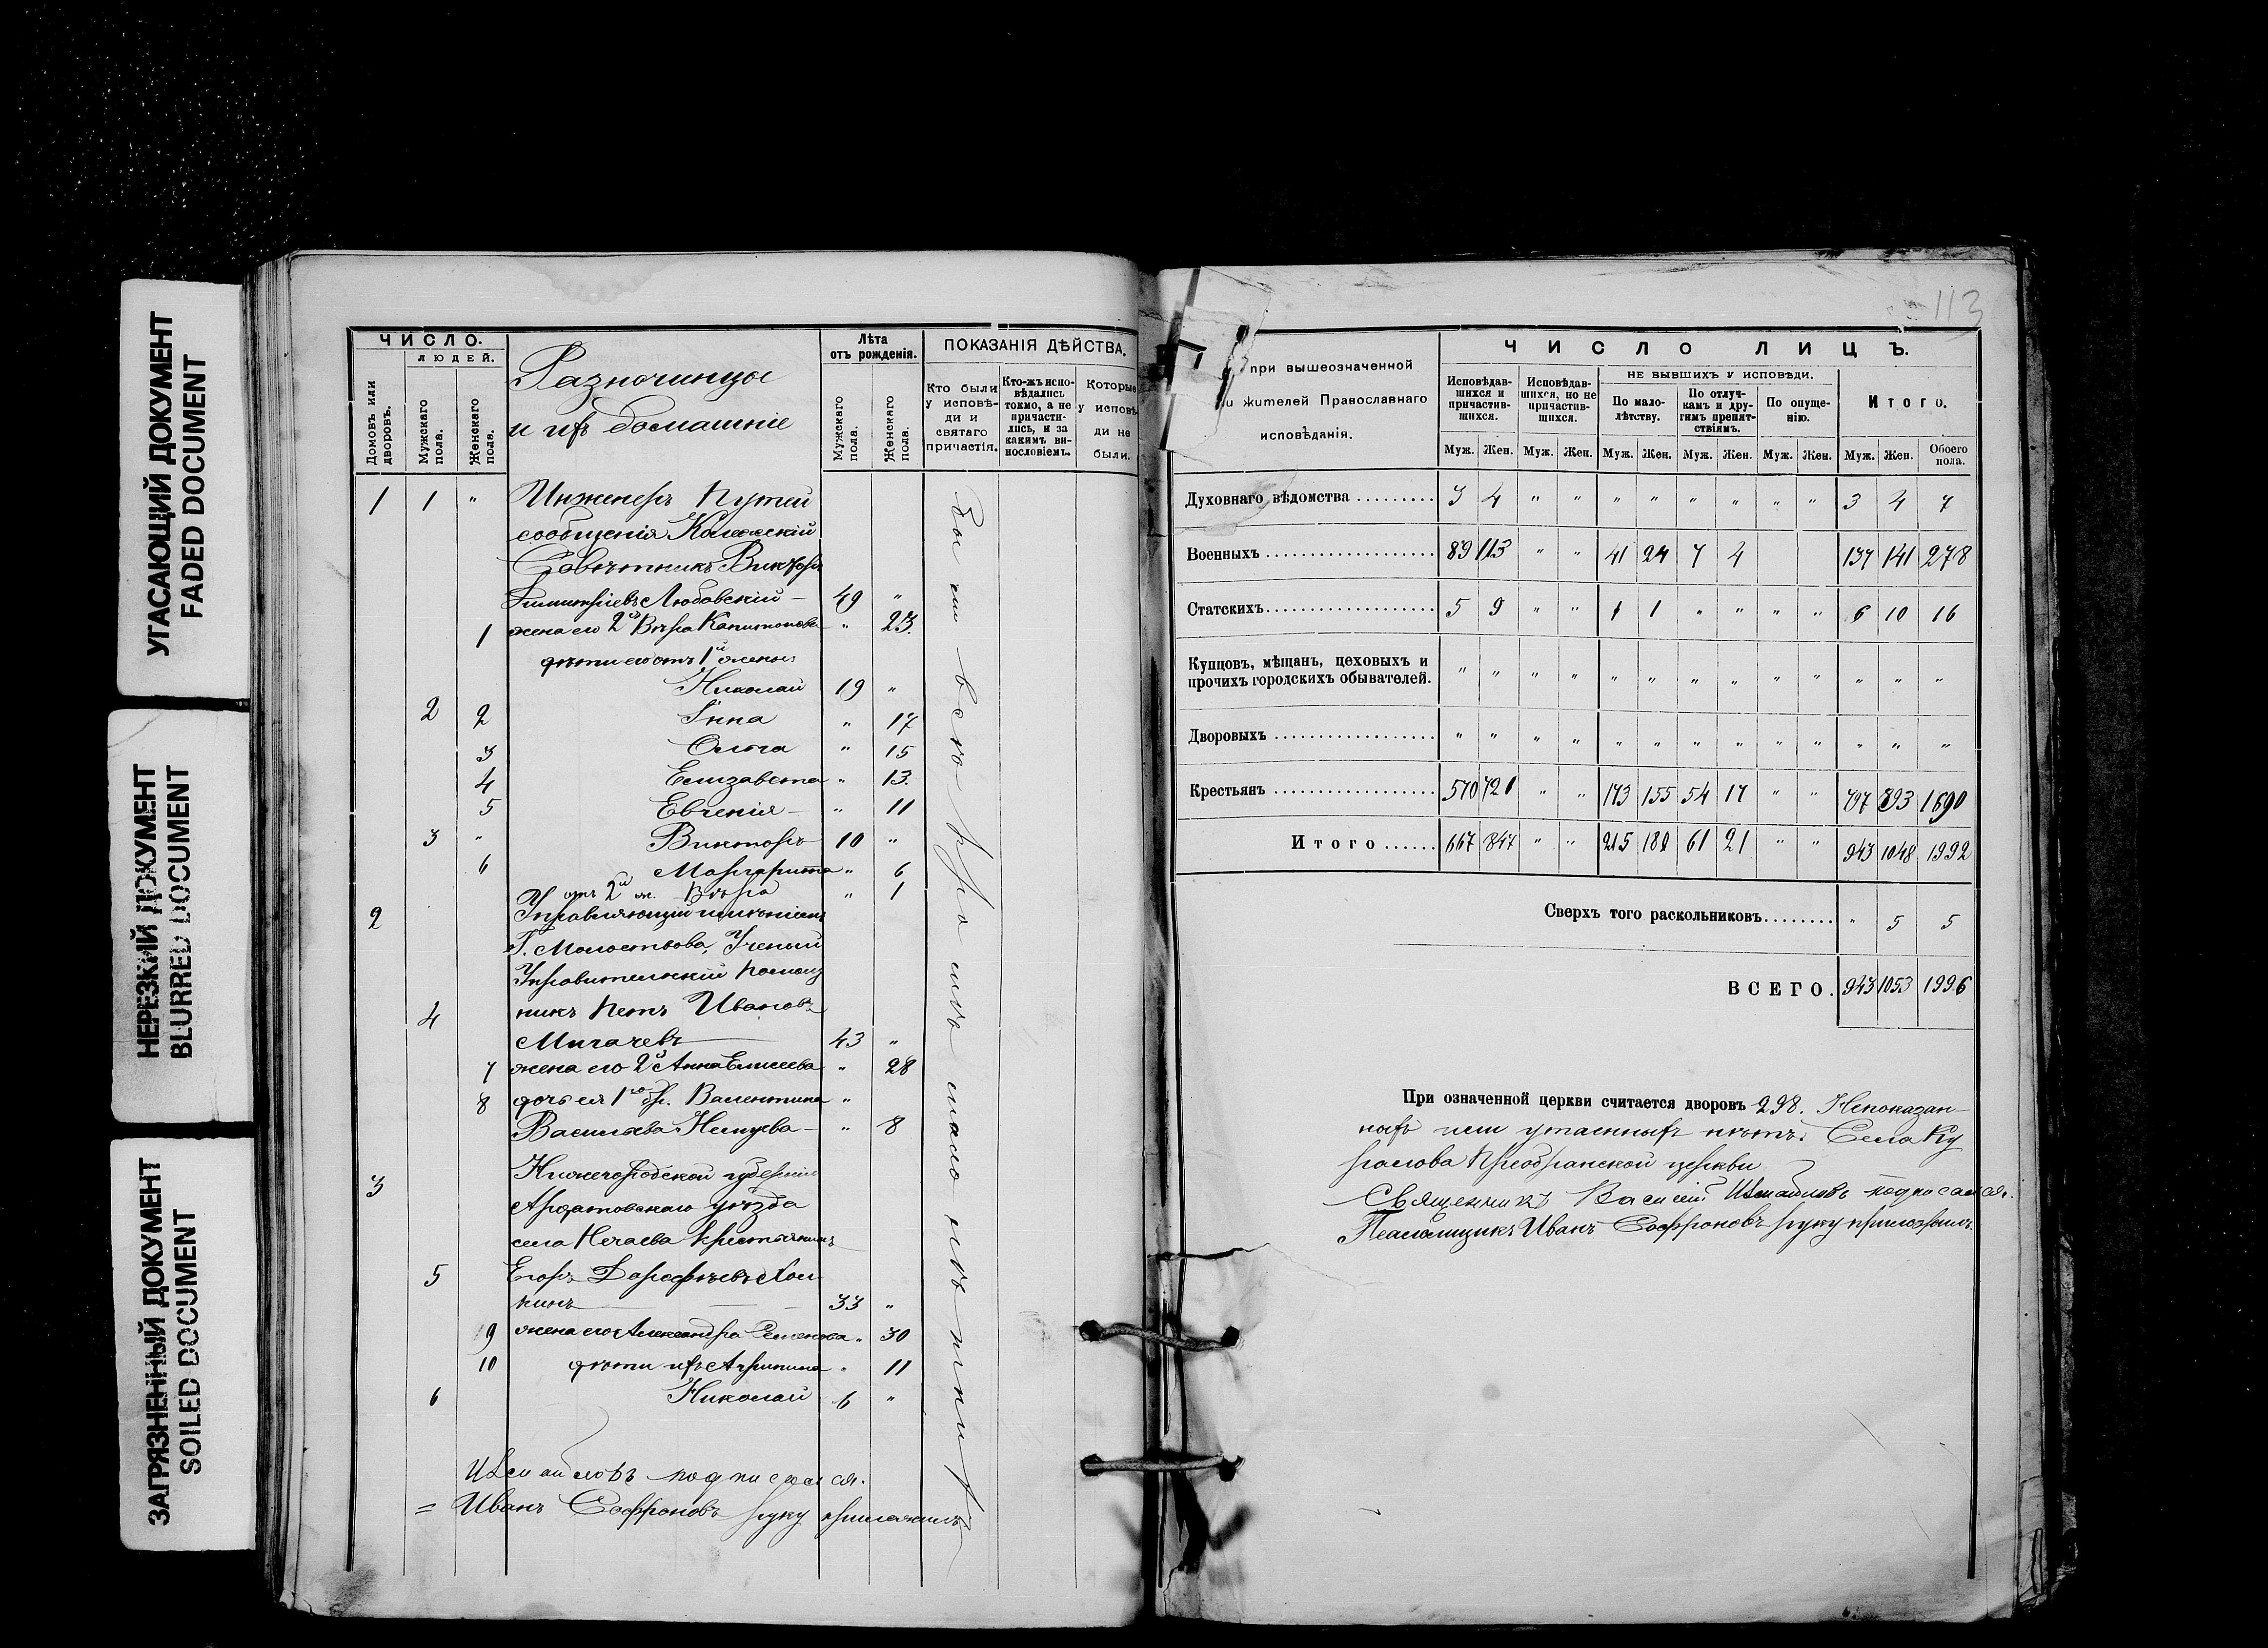 УГАСАЮЩИЙ ДОКУМЕНТ
FADED DOCUMENT
НЕРЕЗКИЙ ДОКУМЕНТ
BLURRED DOCUMENT
ЗАГРЯЗНЕННЫЙ ДОКУМЕНТ
SOILED DOCUMENT
ЧИСЛО.
ЛЮДЕЙ.
Домовъ или дворовъ.
Мужскаго пола.
Женскаго пола.
Разночинцы
и ихъ домашніе
Лѣта
отъ рожденія.
Мужскаго пола.
Женскаго пола.
ПОКАЗАНІЯ ДѢЙСТВА.
Кто были у исповѣ-ди и святаго причастія.
Кто-жъ испо-вѣдались токмо, а не причасти-лись, и за какимъ ви-нословіемъ.
Которые у исповѣ-ди не были.
1 1 " Инженеръ Путей
сообщенія Коллежскій
Совѣтникъ Викторъ
Дмитріевъ Любовскій — 49 "
1 жена его 2я Вѣра Капитонова " 23.
дѣти его отъ 1й жены:
Николай 19 "
2 2 Анна " 17
3 Ольга " 15
4 Елизавета " 13.
5 Евгенія — " 11
3 " Викторъ 10 "
6 Маргарита " 6
У отъ 2й ж. Вѣра " 1
2 Управляющій имѣніемъ
Г. Молоствова, Ученый
Управительскій помощ
4 никъ Петъ Ивановъ
Мигачевъ 43 "
7 жена его 2я Анна Елисеева " 28
8 дочь ея 1го бр. Валентина "
Васильева — " 8
3 Нижегородской губерніи
Ардатовскаго уѣзда
села Нечаева крестьянинъ
5 Егоръ Дорофѣевъ
кинъ 33 "
9 жена его Александра Семенова " 30
10 дѣти ихъ Агрипина " 11
6 Николай 6 "
Измайловъ подписался.
= Иванъ Софроновъ руку приложилъ
113
при вышеозначенной
и жителей Православнаго
исповѣданія.
ЧИСЛО ЛИЦЪ.
Исповѣдав-шихся и причастив-шихся.
Исповѣдав-шихся, но не причастив-шихся.
НЕ БЫВШИХЪ У ИСПОВѢДИ.
По мало-лѣтству.
По отлуч-камъ и дру-гимъ препят-ствіямъ.
По опуще-нію.
Итого.
Муж. Жен. Муж. Жен. Муж. Жен. Муж. Жен. Муж. Жен. Муж. Жен. Обоего пола.
Духовнаго вѣдомства ......... 3 4 " " " " " " " " 3 4 7
Военныхъ ................... 89 113 " " 41 24 7 4 137 141 278
Статскихъ................... 5 9 " " 1 1 " " " " 6 10 16
Купцовъ, мѣщанъ, цеховыхъ и
прочихъ городскихъ обывателей. " " " " " " " " " " " " "
Дворовыхъ .................. " " " " " " " " " " " " "
Крестьянъ .................. 570 721 " " 173 155 54 17 " " 797 893 1690
Итого...... 667 847 " " 215 180 61 21 " " 943 1048 1992
Сверхъ того раскольниковъ........ " 5 5
ВСЕГО. 943 1053 1996
При означенной церкви считается дворовъ 298. Непоказан-
ныхъ или утаенныхъ нѣтъ. Села Ку
ралова Преображанской церкви
Священникъ Василій Измайловъ подписался.
Псаломщикъ Иванъ Софроновъ руку приложилъ